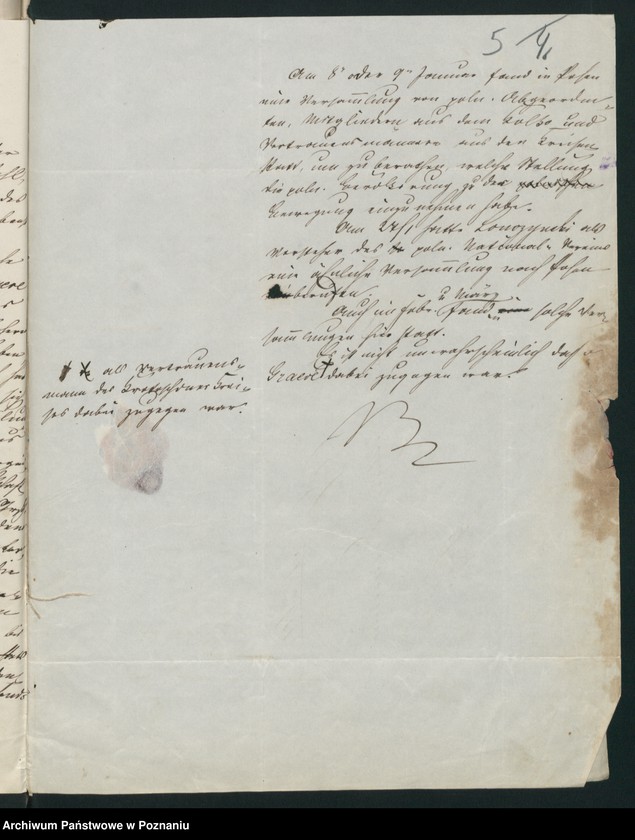 5
Am 8t oder 9ten Januar fand in Posen
eine Versammlung von poln. Abgeordne-
ten, Mitgliedern aus dem Volke und
Vertrauensmännern aus den Kreisen
statt, um zu berathen, welche Stellung
die poln. Bevölkerung zu der
Bewegung einzunehmen habe.
Am 27/1 hatte als
Vorsteher des poln. National-Vereins
eine ähnliche Versammlung nach Posen
einberufen.
Auch im Febr. u März fanden solche Ver-
sammlungen hier statt.
Es ist nicht unwahrscheinlich daß
Graeve dabei zugegen war.
als Vertrauens-
mann des Krotoschiner Krei-
ses dabei zugegen war.
Archiwum Państwowe w Poznaniu